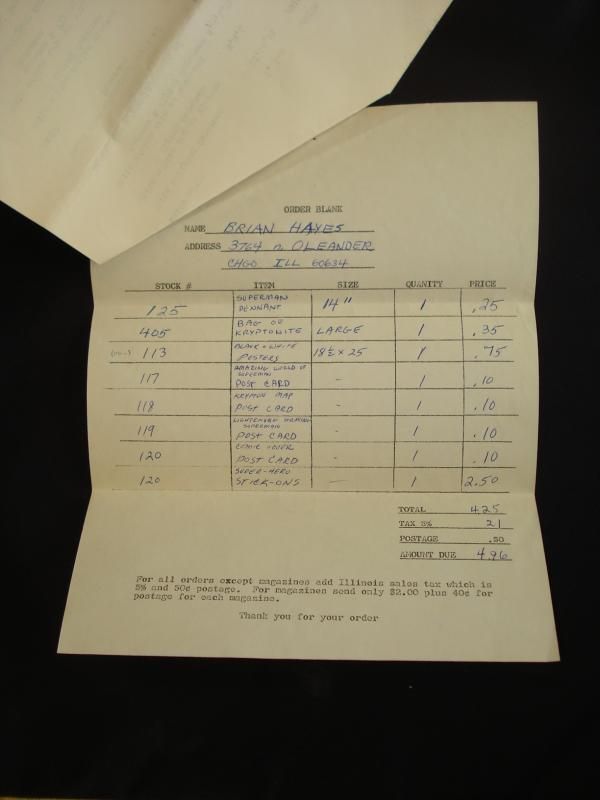 ORDER BLANK
NAME BRIAN HAYES
ADDRESS 3764 N. OLEANDER
CHGO ILL 60634
STOCK # ITEM SIZE QUANITY PRICE
125 SUPERMAN PENNANT 14" 1 .25
405 BAG OF KRYPTONITE LARGE 1 .35
113 BLACK + WHITE POSTERS 18½ x 25 1 .75
117 AMAZING WORLD OF SUPERMAN POST CARD - 1 .10
118 KRYPTON MAP POST CARD - 1 .10
119 SUPERMAN POST CARD - 1 .10
120 COMIC COVER POST CARD - 1 .10
120 SUPER-HERO STICK-ONS - 1 2.50
TOTAL 4.25
TAX 5% 21
POSTAGE .50
AMOUNT DUE 4.96
For all orders except magazines add Illinois sales tax which is
5% and 50¢ postage. For magazines send only $2.00 plus 40¢ for
postage for each magazine.
Thank you for your order